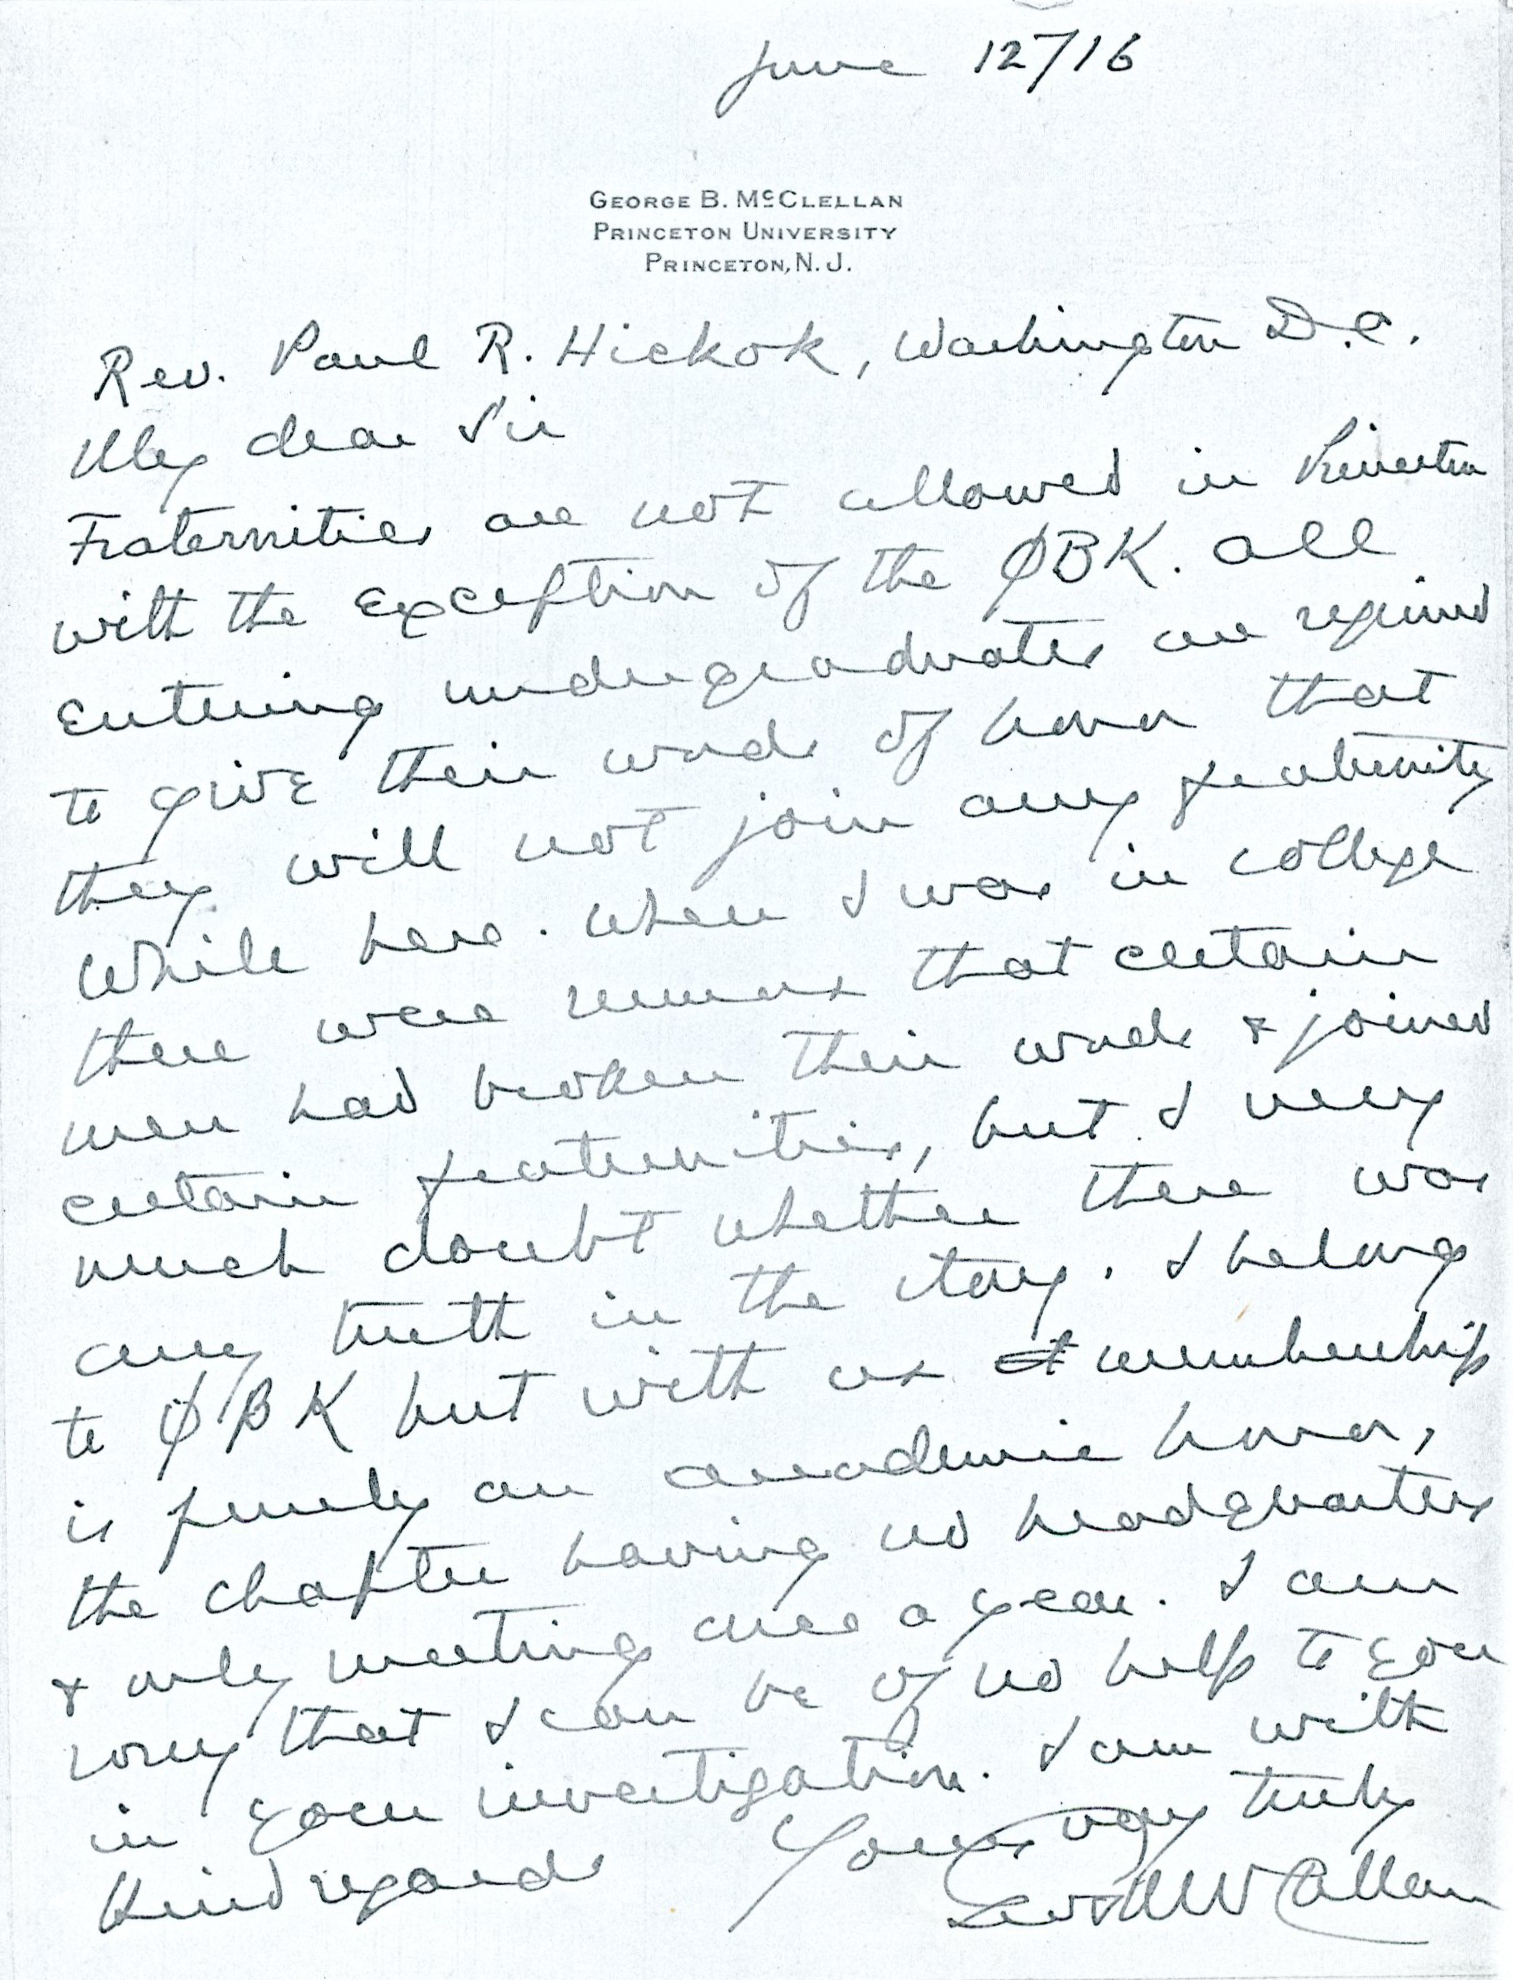 June 12/16
GEORGE B. McCLELLAN
PRINCETON UNIVERSITY
PRINCETON, N. J.
Rev. Paul R. Hickok, Washington D.C.
My dear Sir
Fraternities are not allowed in Princeton
with the exception of the ΦBK. All
entering undergraduates are required
to give their words of honor that
they will not join any fraternity
while here. When I was in college
there were rumors that certain
men had broken their words & joined
certain fraternities, but I very
much doubt whether there was
any truth in the story. I belong
to ΦBK but with us membership
is purely an academic honor,
the chapter having no headquarters
& only meeting once a year. I am
sorry that I can be of no help to you
in your investigation. I am with
kind regards Yours very truly
Geo B McClellan